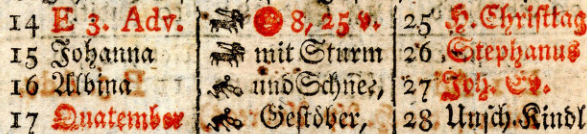 14 E 3. Adv. 8, 25 v. 25 H. Christtag
15 Johanna mit Sturm 26 Stephanus
16 Albina und Schnee, 27 Joh. Ev.
17 Quatember Gestöber, 28 Unsch. Kindl